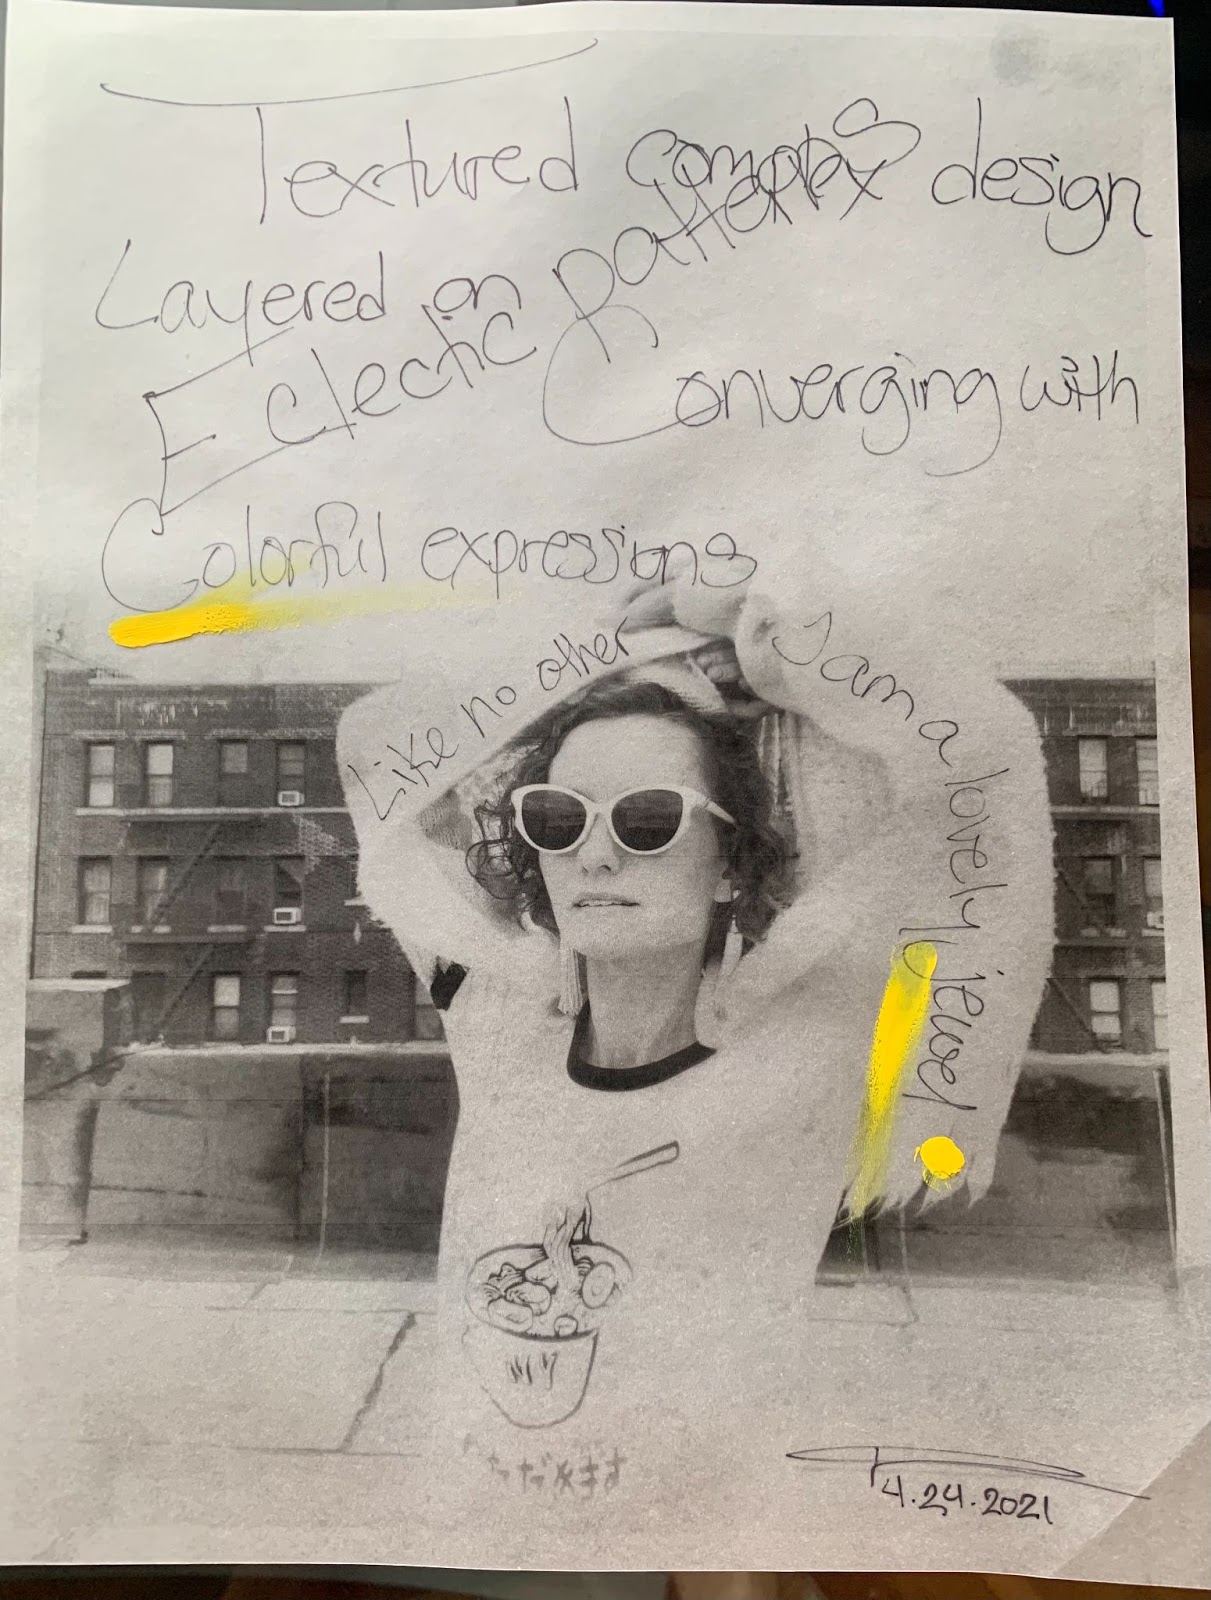 Textured complex design
Layered on
Eclectic Patterns
Converging with
Colorful expressions
Like no other
I am a lovely jewel
ただきます
4.24.2021